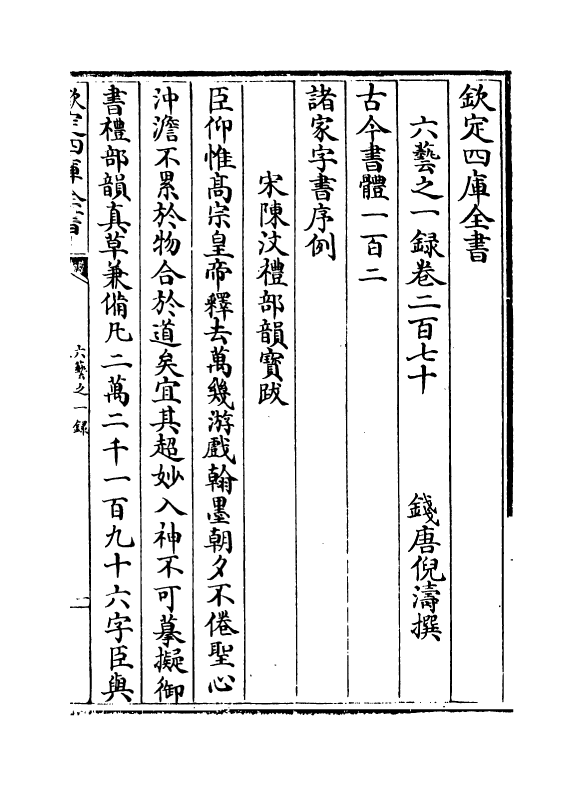 欽定四庫全書
六藝之一録卷二百七十
錢唐倪濤撰
古今書體一百二
諸家字書序例
宋陳汶禮部韻寳跋
臣仰惟髙宗皇帝釋去萬幾游戲翰墨朝夕不倦聖心
沖澹不累於物合於道矣宜其超妙入神不可摹擬御
書禮部韻真草兼備凡二萬二千一百九十六字臣與
欽定四庫全書
六藝之一録
一